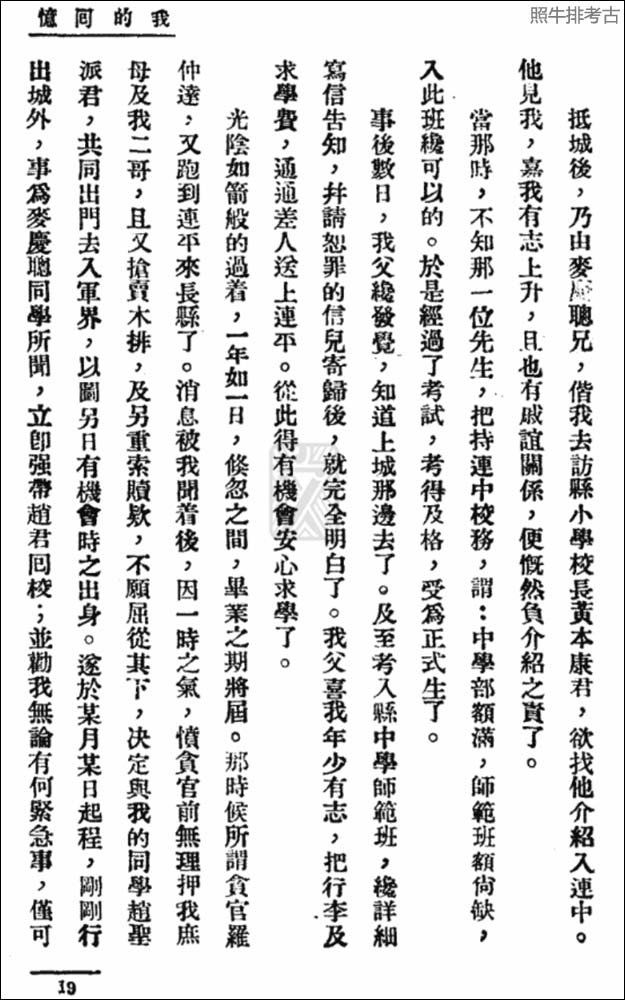 照牛排考古
我的回憶
抵城後，乃由麥慶聰兄，偕我去訪縣小學校長黃本康君，欲找他介紹入連中。
他見我，嘉我有志上升，且也有戚誼關係，便慨然負介紹之責了。
當那時，不知那一位先生，把持連中校務，謂：中學部額滿，師範班額尙缺，
入此班纔可以的。於是經過了考試，考得及格，受爲正式生了。
事後數日，我父纔發覺，知道上城那邊去了。及至考入縣中學師範班，纔詳細
寫信告知，幷請恕罪的信兒寄歸後，就完全明白了。我父喜我年少有志，把行李及
求學費，通通差人送上連平。從此得有機會安心求學了。
光陰如箭般的過着，一年如一日，倏忽之間，畢業之期將屆。那時候所謂貪官羅
仲達，又跑到連平來長縣了。消息被我聞着後，因一時之氣，憤貪官前無理押我庶
母及我二哥，且又搶賣木排，及另重索贖欵，不願屈從其下，决定與我的同學趙聖
派君，共同出門去入軍界，以圖另日有機會時之出身。遂於某月某日起程，剛剛行
出城外，事爲麥慶聰同學所聞，立卽强帶趙君回校；並勸我無論有何緊急事，僅可
19